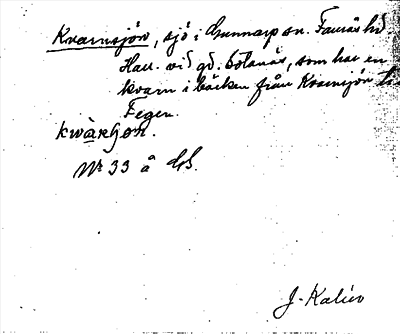 Kvarnsjön, sjö i Gunnarp sn. Faurås hd.
Hall. vid gd. Bolanäs, som har en
kvarn i bäcken från Kvarnsjön
Fegen.
kwàɳʃon.
Nr 33 å GS.
J. Kalén